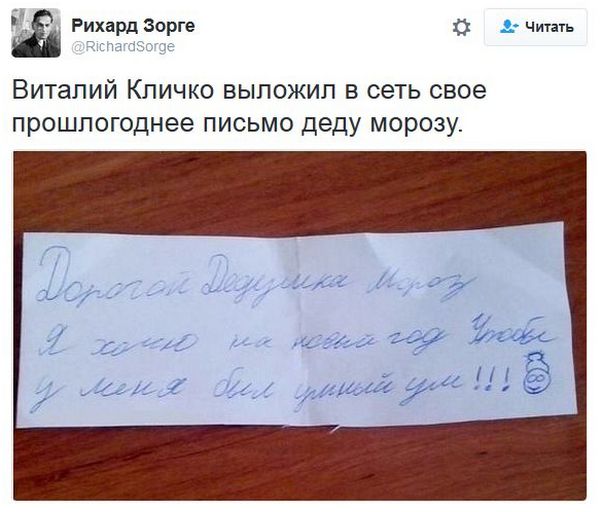 Рихард Зорге
@RichardSorge
Читать
Виталий Кличко выложил в сеть свое
прошлогоднее письмо деду морозу.
Дорогой Дедушка Мороз
Я хочю на новый год Чтобы
у меня был умный ум!!!